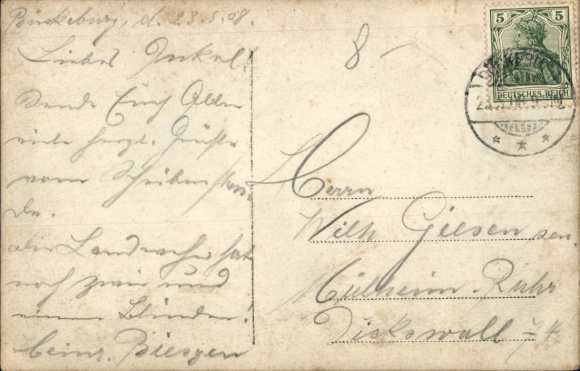 Bückeburg, d. 23.5.08.
Lieber Onkel.
Sende Euch Allen
viele herzl. Grüße
vom
die Landwehr hat
noch zwei und
einen
Heinr. Biesgen
8 -
5 5
DEUTSCHES REICH
BÜCKEBURG
Herrn
Wilh. Giesen sen
Mülheim-Ruhr
Dickswall 74